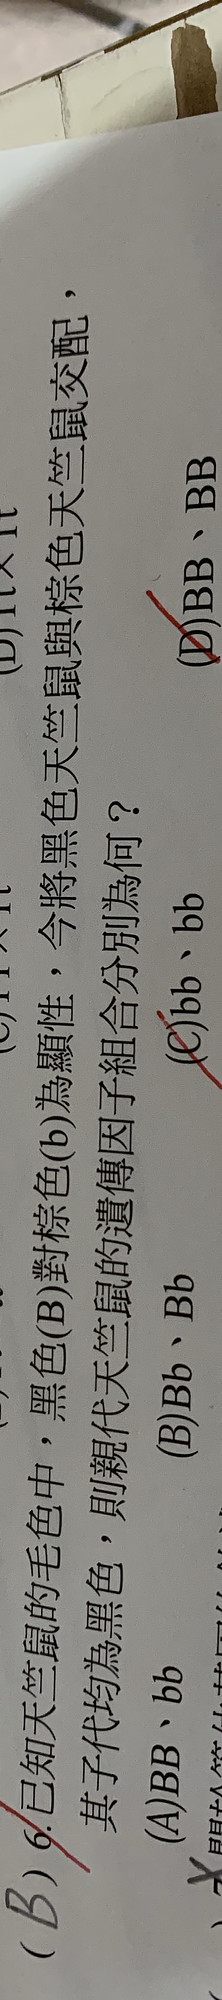 (B) 6.已知天竺鼠的毛色中，黑色(B)對棕色(b)為顯性，今將黑色天竺鼠與棕色天竺鼠交配，
其子代均為黑色，則親代天竺鼠的遺傳因子組合分別為何？
(A)BB、bb (B)Bb、Bb (C)bb、bb (D)BB、BB